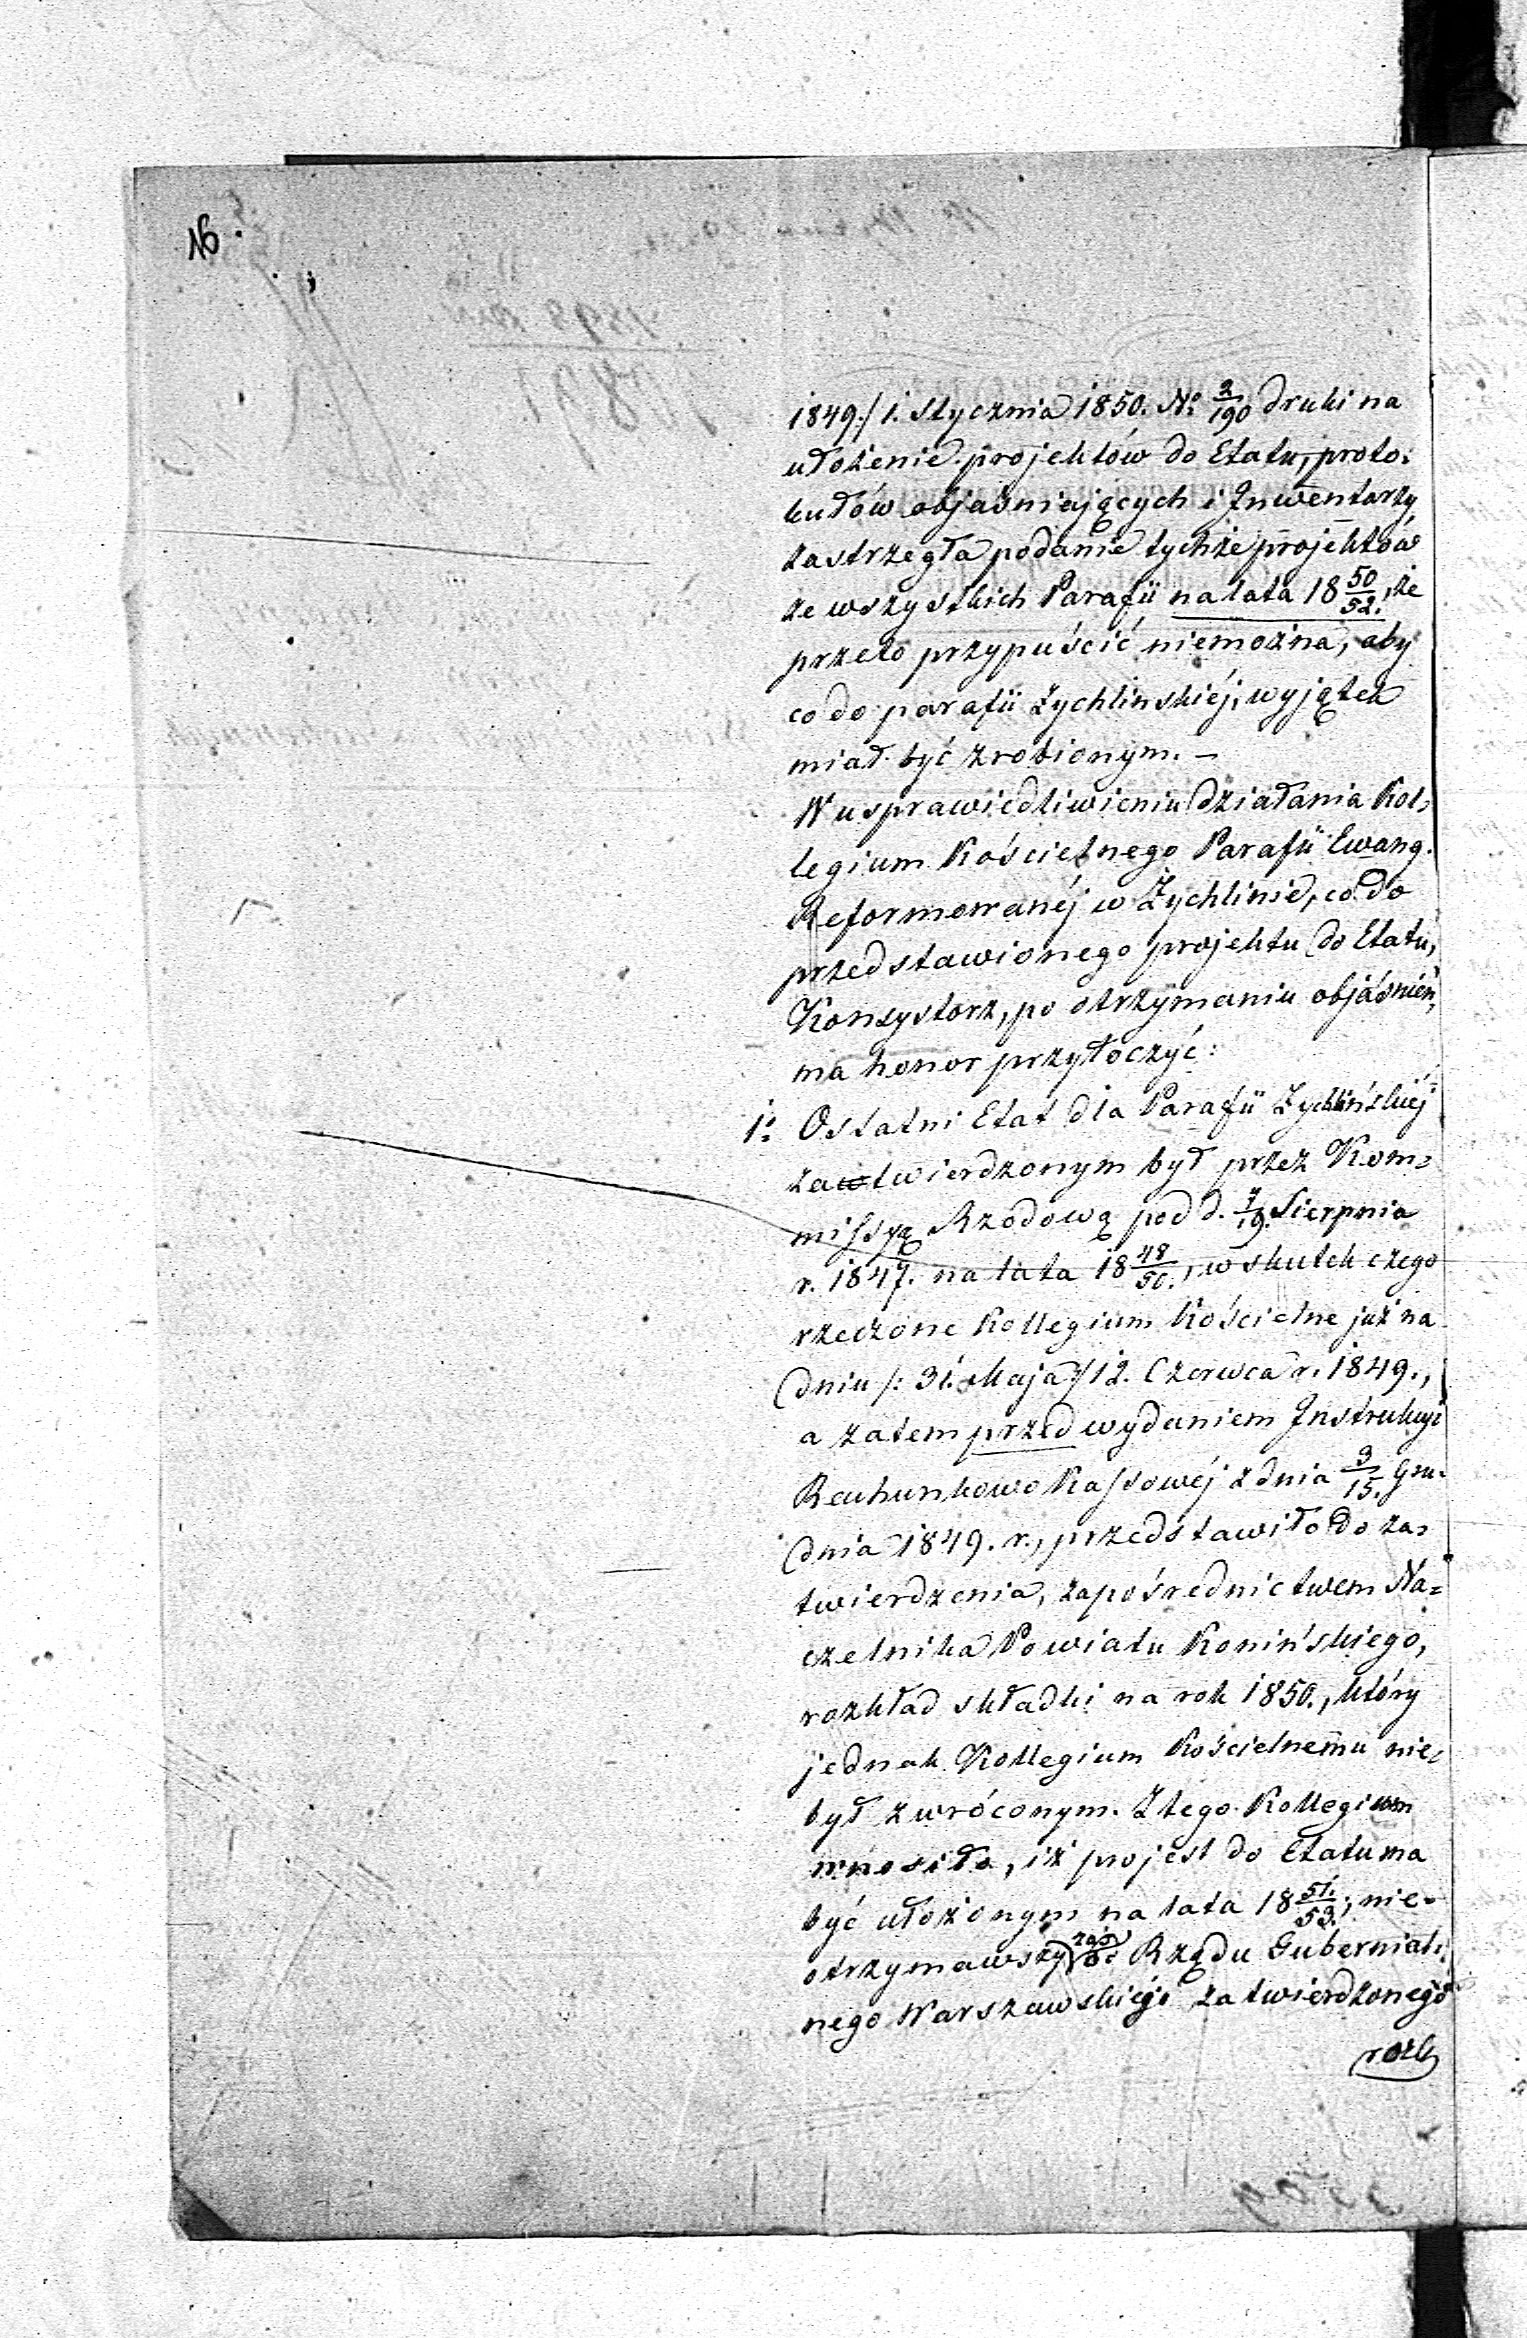 16.
1849./1. Stycznia 1850. No. 3/190 druki na
ułożenie projektów do Etatu, proto-
kułów objaśniających i Inwentarzy
zastrzegła podanie tychże projektów
ze wszystkich Parafii na lata 18 50/52., że
przeto przypuścić niemożna, aby
co do parafii Żychlinskiéj, wyjątek
miał być zrobionym. —
W usprawiedliwieniu działania Kol-
legium Kościelnego Parafii Ewang.
Reformowanéj w Żychlinie, co do
przedstawionego projektu do Etatu,
Konsystorz, po otrzymaniu objaśnień,
ma honor przytoczyć:
1o. Ostatni Etat dla Parafii Żychlińskiéj
zatwierdzonym był przez Kom-
missyą Rządową pod d. 7/19. Sierpnia
r. 1847. na lata 18 48/50., w skutek czego
rzeczone Kollegium Kościelne już na
dniu /: 31. Maja :/ 12. Czerwca r. 1849.,
a zatem przed wydaniem Instrukcyi
Rachunkowo Kassowéj z dnia 3/15. Gru-
dnia 1849. r., przedstawiło do za-
twierdzenia, za pośrednictwem Na-
czelnika Powiatu Konińskiego,
rozkład składki na rok 1850., który
jednak Kollegium Kościelnemu nie-
był zwróconym. Z tego Kollegium
wnosiło, iż projekt do Etatu ma
być ułożonym na lata 18 51./53.; nie-
otrzymawszy zaś od Rządu Gubernial-
nego Warszawskiego zatwierdzonego
rozk